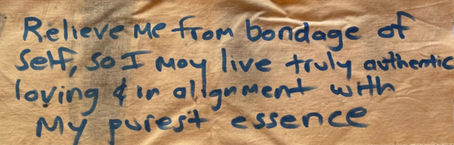 Relieve Me from bondage of
Self, so I may live truly authentic
loving & in alignment with
My purest essence